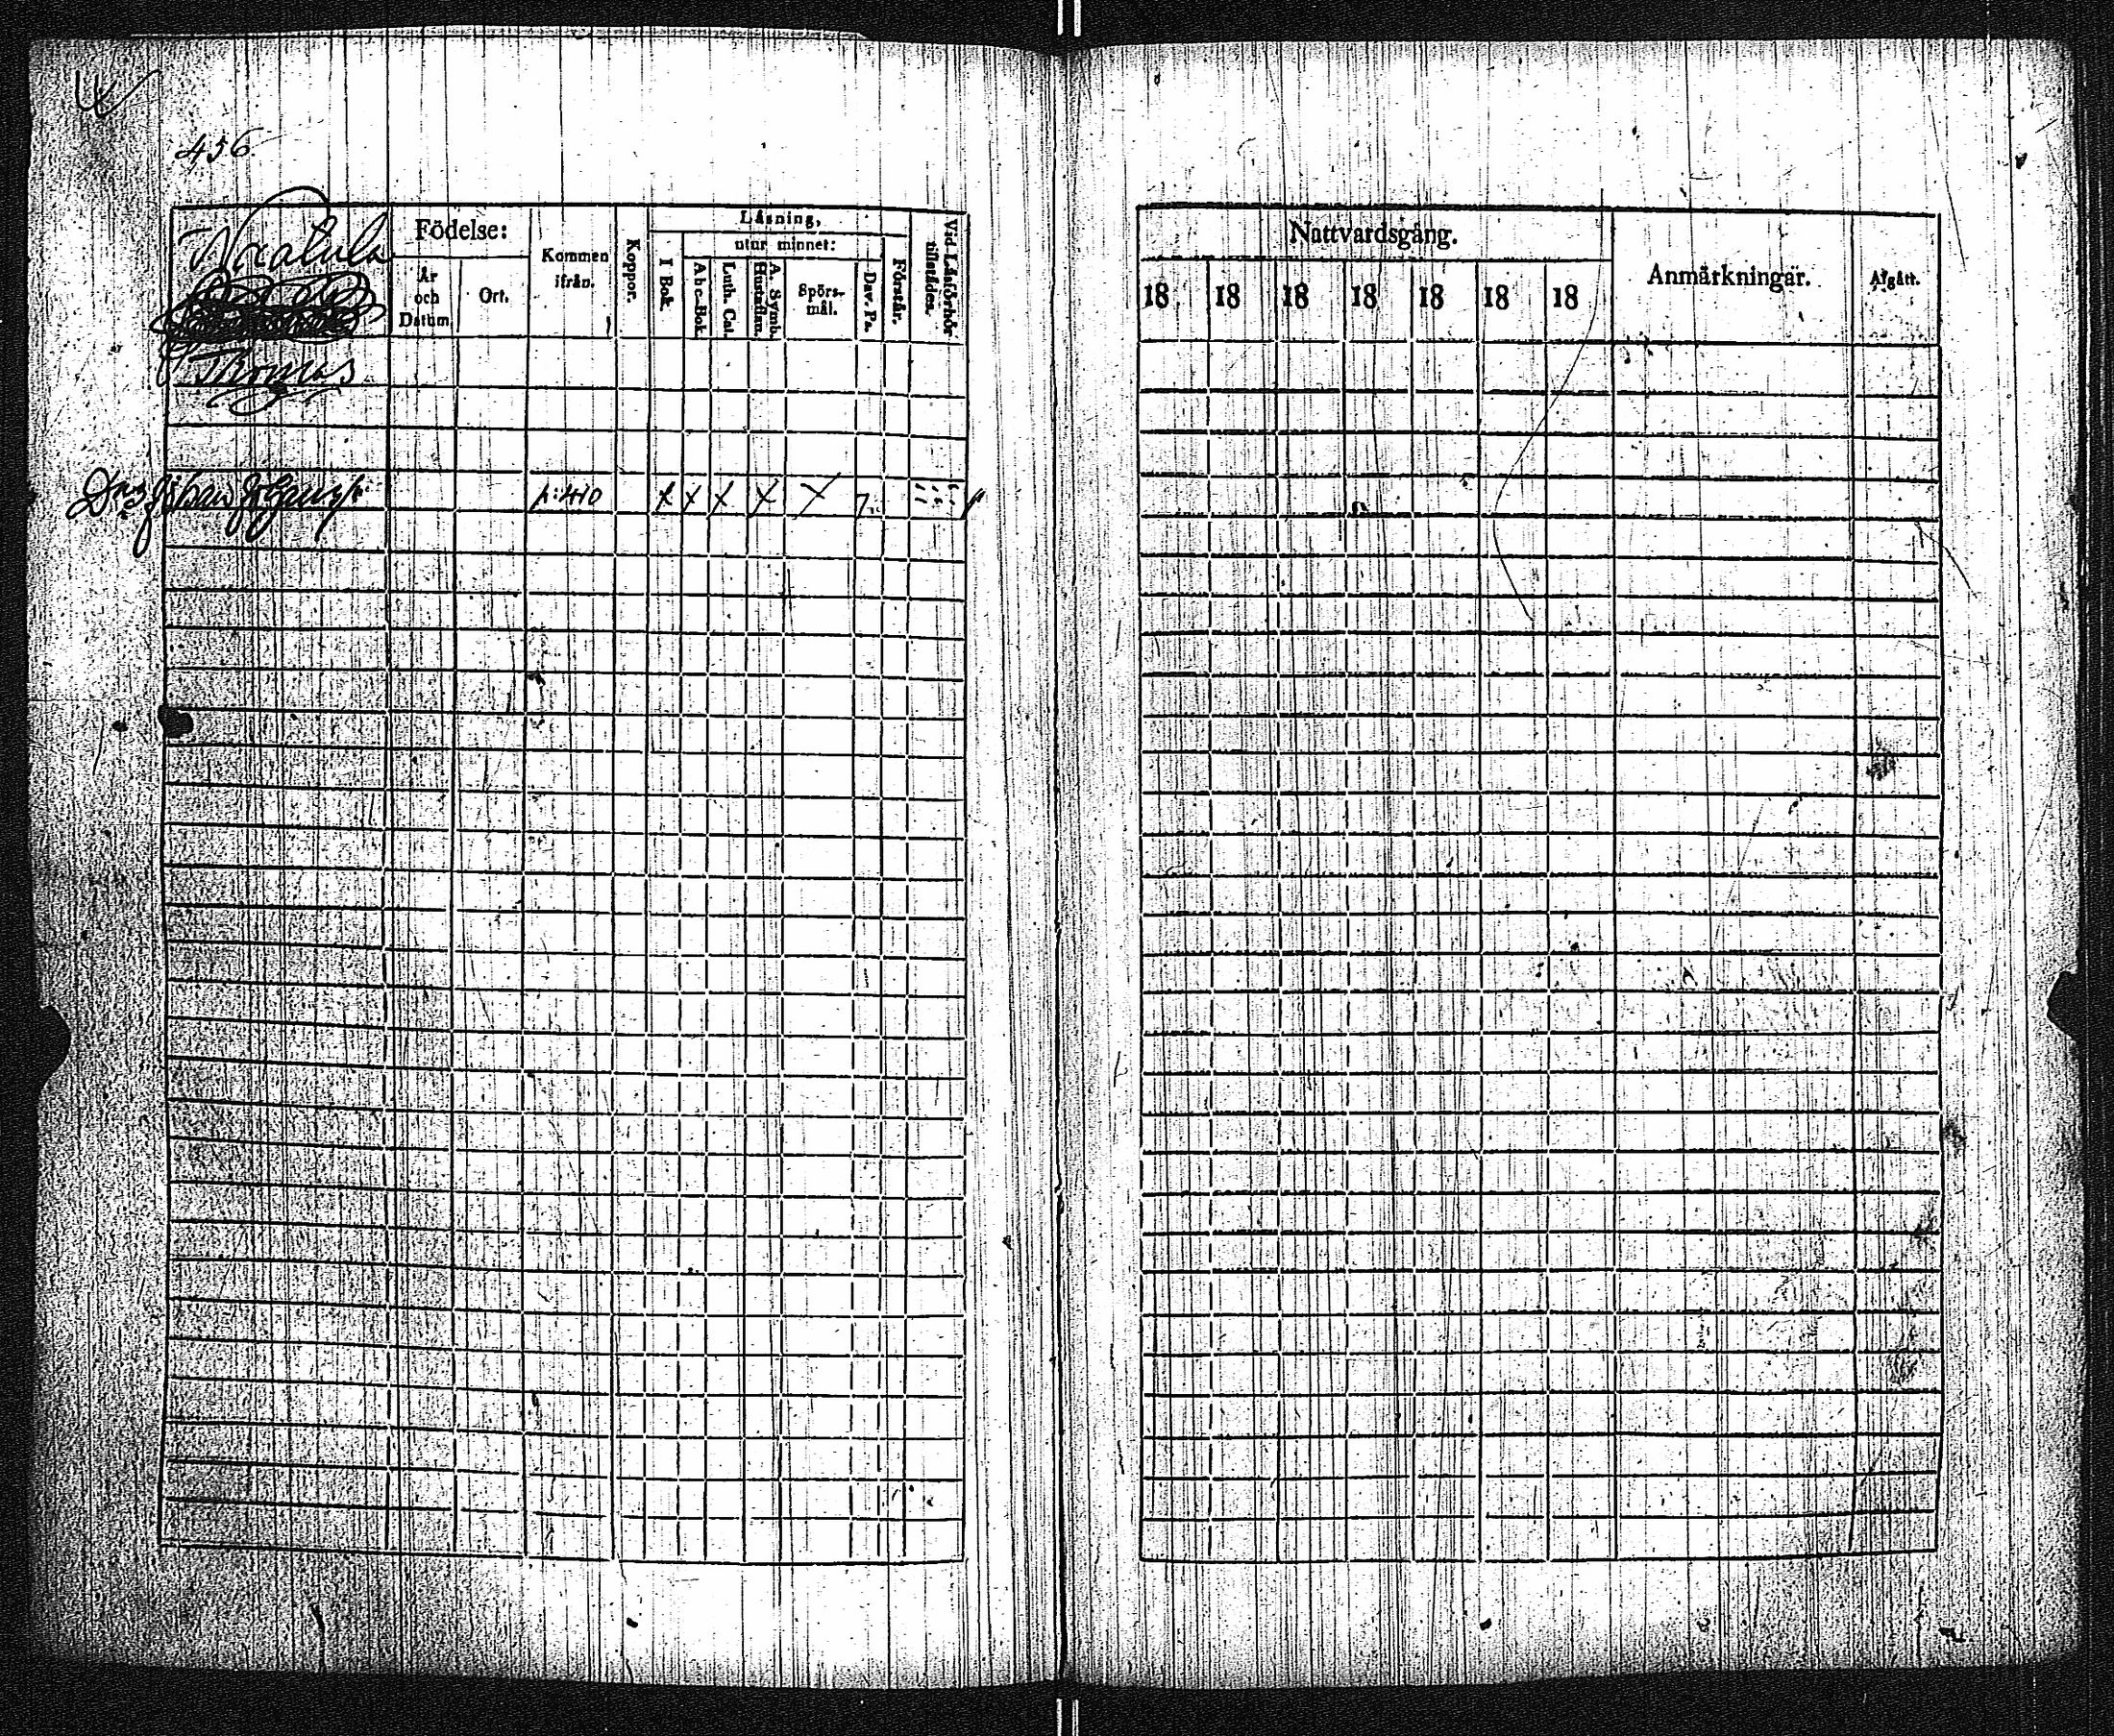 456.
Födelse:
År och Datum.
Ort.
Kommen ifrån.
Koppor.
Läsning,
I Bok.
utur minnet:
Abc-Bok.
Luth. Cat.
A. Symb. Hustaflan.
Spörs-mål.
Dav. Ps.
Förstår.
Vid Läsförhör tillstädes.
Thomas
Johan p:410 x x x x x
Nattvardsgång.
18 18 18 18 18 18 18
Anmärkningar.
Afgått.